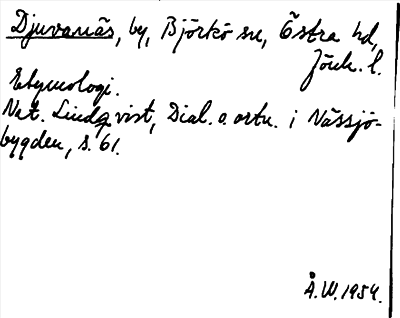 Djuvanäs, by, Björkö sn, Östra hd,
Jönk. l.
Etymologi.
Nat. Lindqvist, Dial. o. ortn. i Nässjö-
bygden, s. 61.
Å.W. 1954.